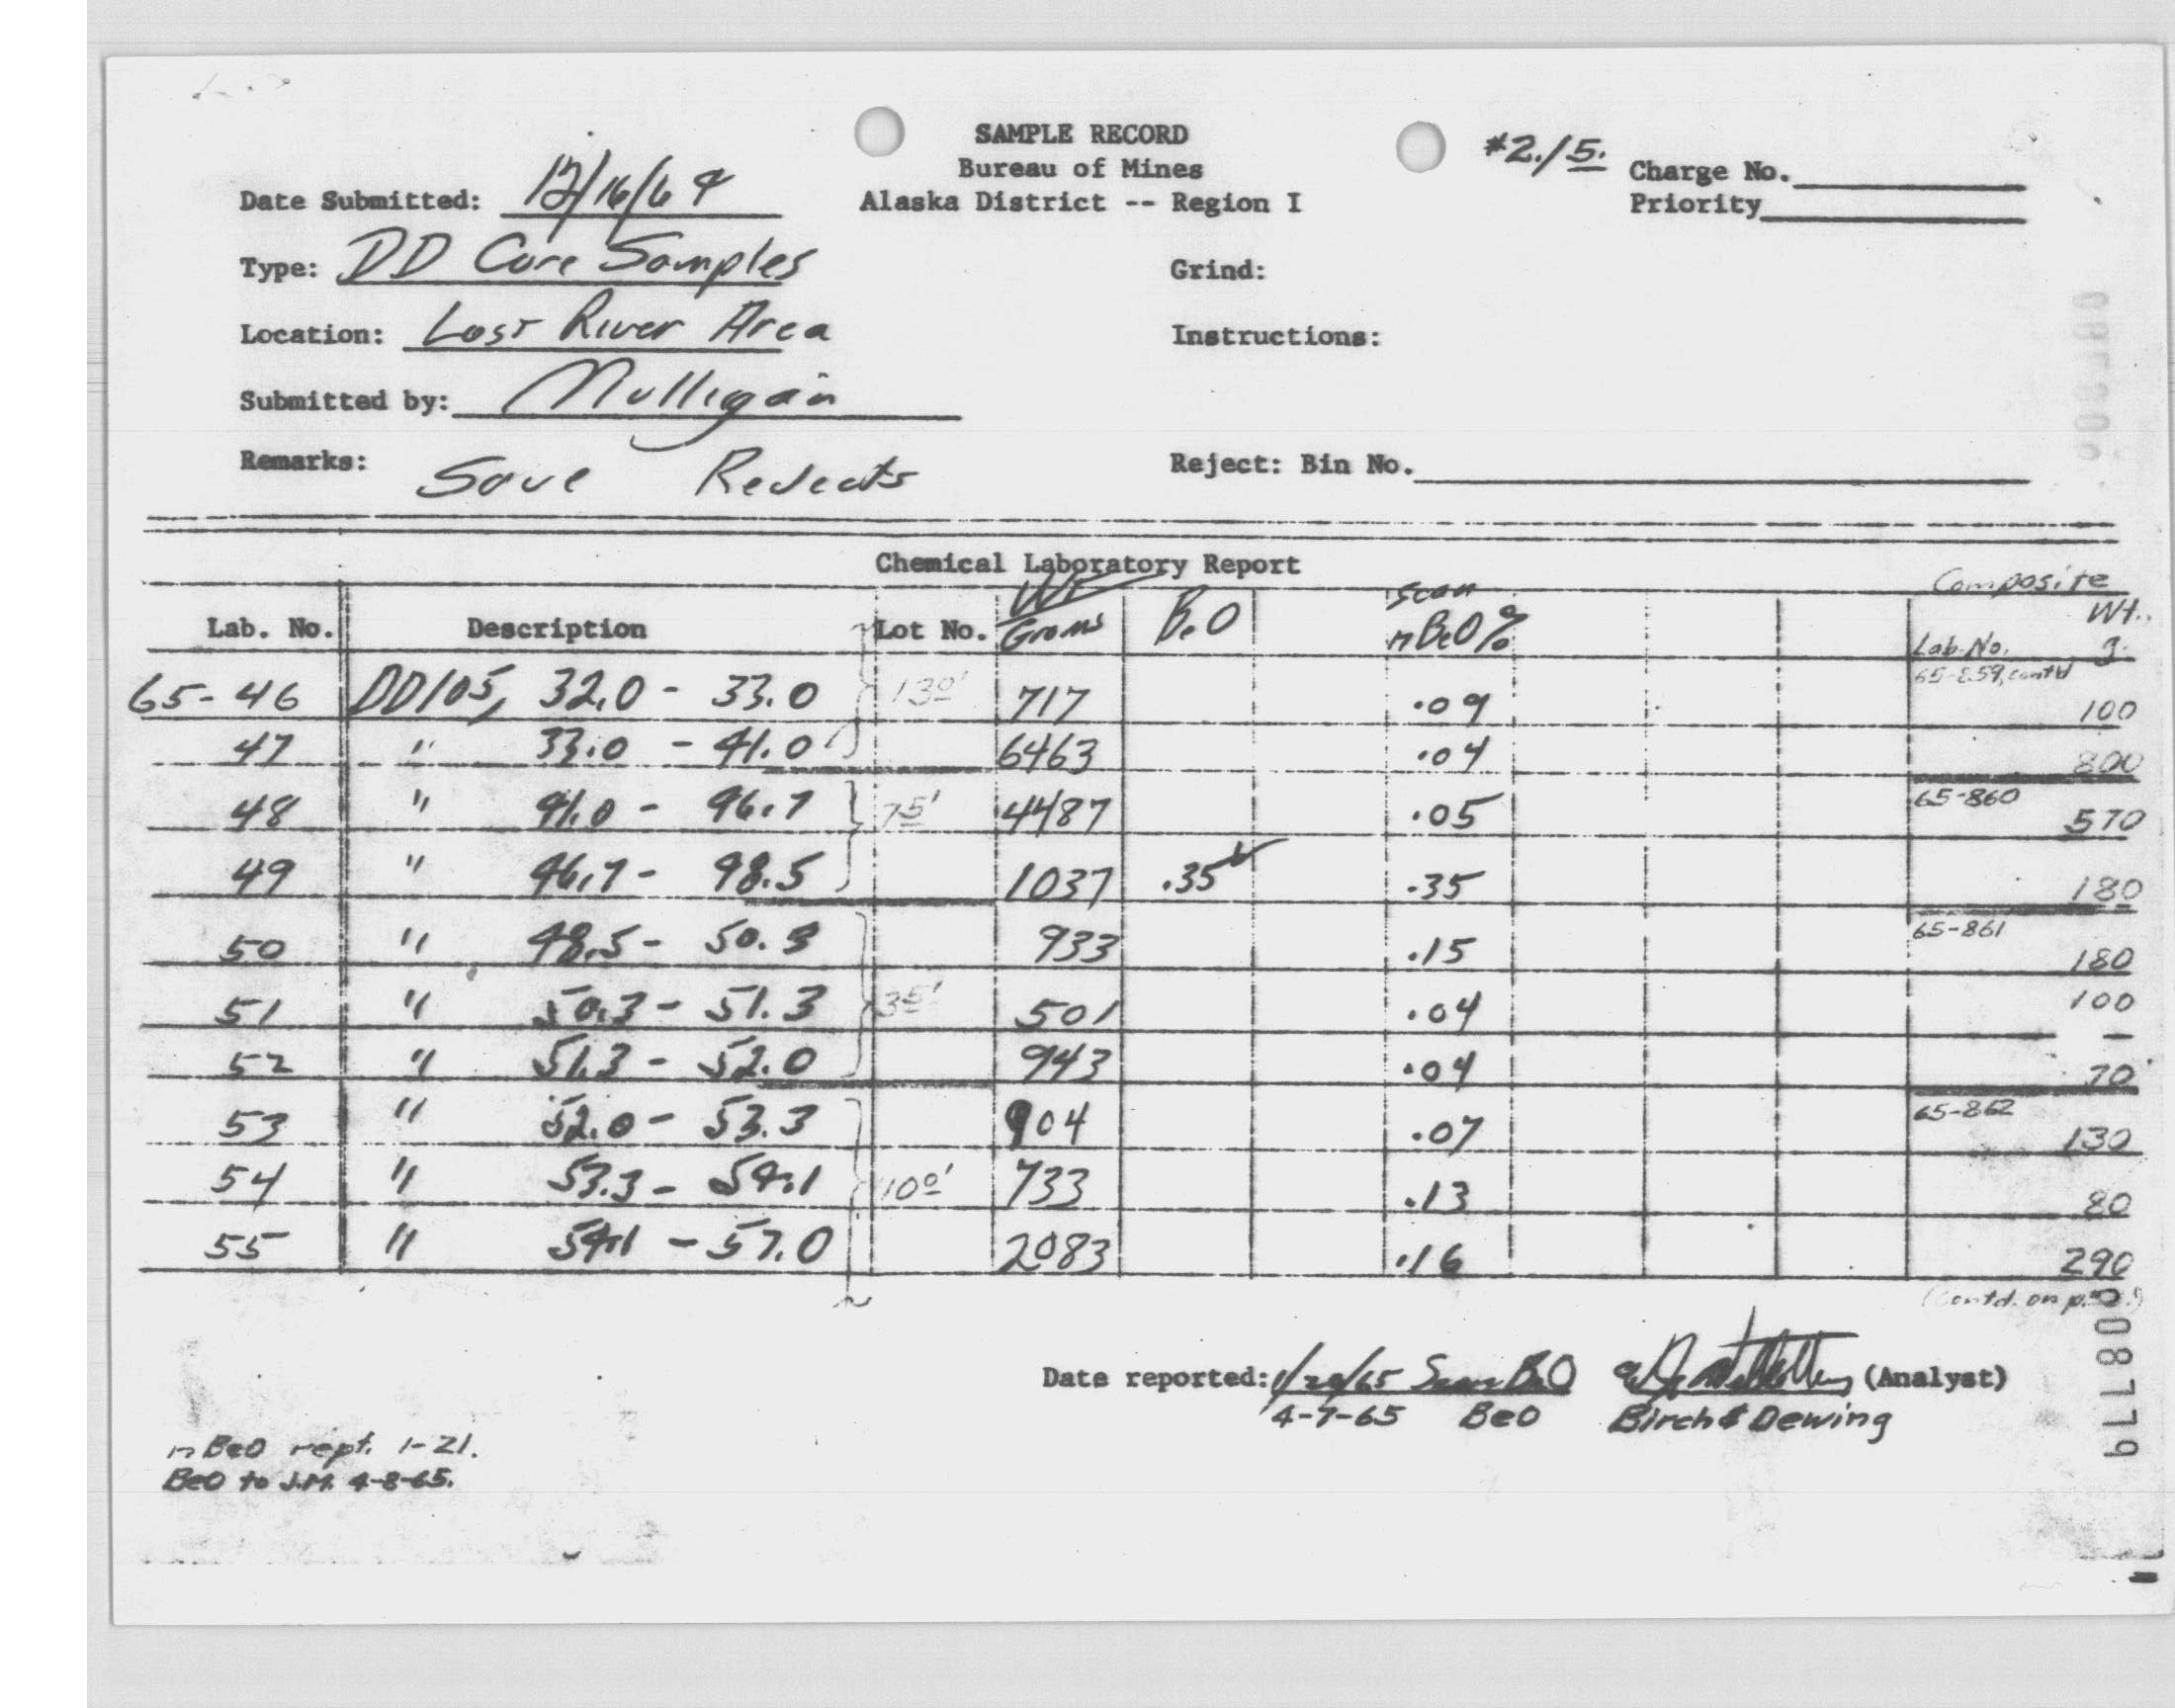 SAMPLE RECORD
Bureau of Mines
Alaska District -- Region I
#2./5.
Charge No.
Priority
Date Submitted: 12/16/64
Type: DD Core Samples
Grind:
Location: Lost River Area
Instructions:
Submitted by: Mulligan
Remarks: Save Rejects
Reject: Bin No.
Chemical Laboratory Report
Composite
Lab. No. Description Lot No. Wt Grams BeO Scan nBeO% Lab. No. Wt., g.
65-859, cont'd
65-46 DD105, 32.0 - 33.0 13 0' 717 .09 100
47 " 33.0 - 41.0 6463 .04 800
65-860
48 " 41.0 - 46.7 7 5' 4487 .05 570
49 " 46.7 - 48.5 1037 .35 .35 180
65-861
50 " 48.5 - 50.3 933 .15 180
51 " 50.3 - 51.3 3 5' 501 .04 100
52 " 51.3 - 52.0 943 .04 70
65-862
53 " 52.0 - 53.3 904 .07 130
54 " 53.3 - 54.1 10 0' 733 .13 80
55 " 54.1 - 57.0 2083 .16 290
(Contd. on p.
Date reported: 1/20/65 Scan BeO (Analyst)
4-7-65 BeO Birch & Dewing
nBeO rept. 1-21.
BeO to J.M. 4-8-65.